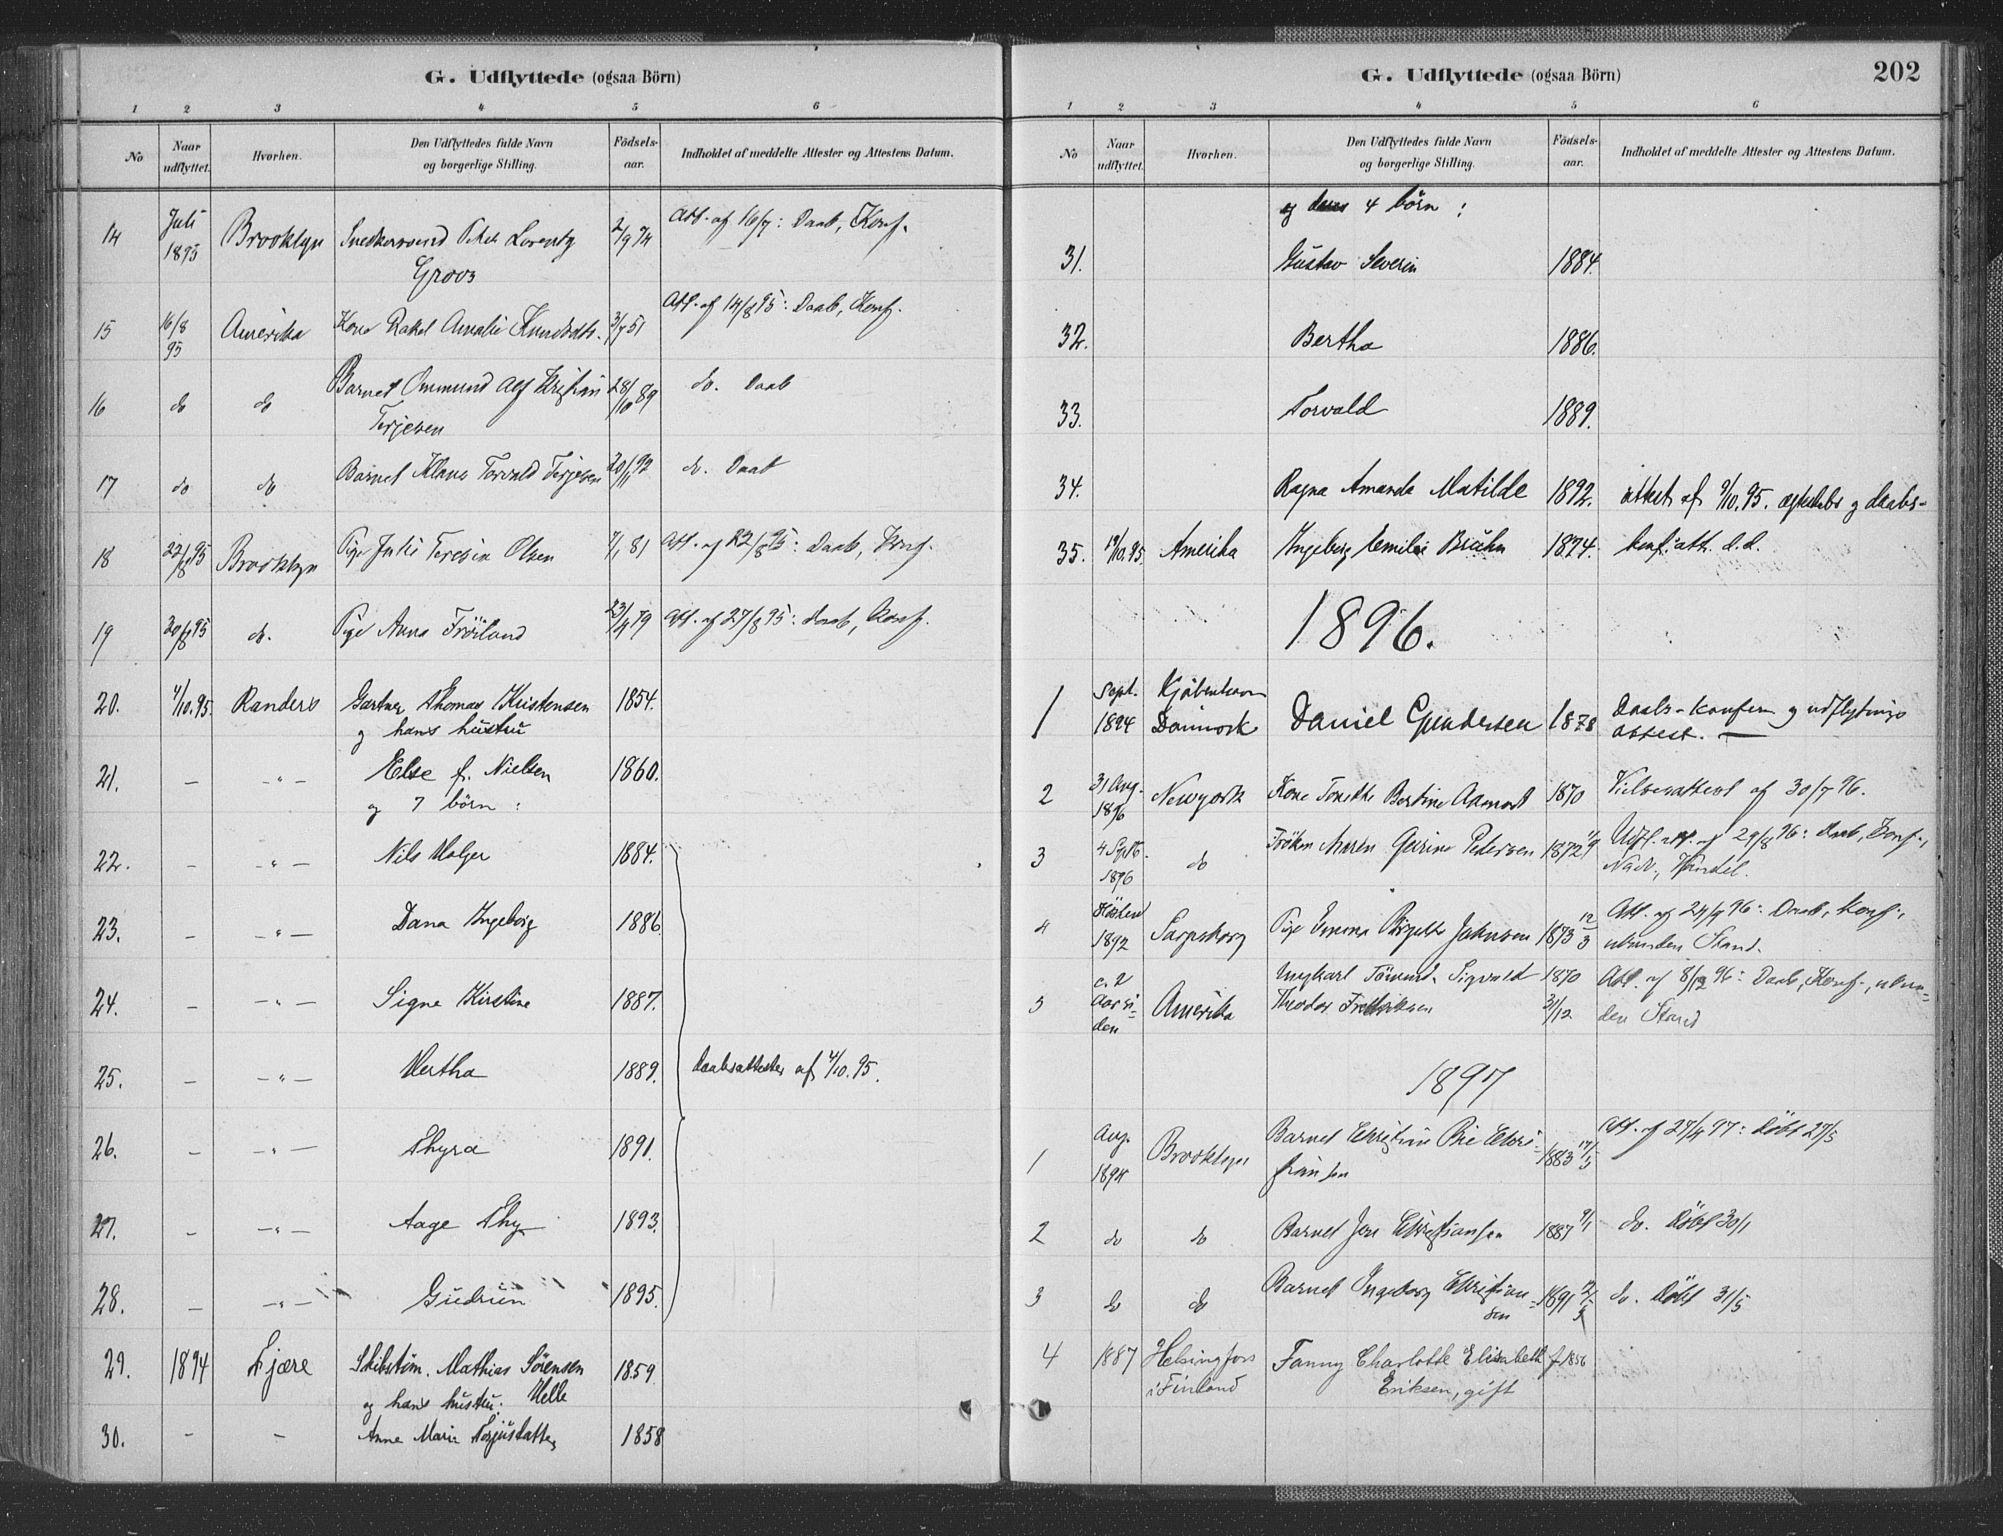 G. Udflyttede (ogsaa Börn)
1 2 3 4 5 6
No
Naar udflyttet.
Hvorhen.
Den Udflyttedes fulde Navn og borgerlige Stilling.
Födsels-aar.
Indholdet af meddelte Attester og Attestens Datum.
14 Juli 1895 Brooklyn Snedkersvend Peter Lorentz Groos 2/9 74 Att. af 16/7: Daab, Konf.
15 16/8 95 Amerika Kone Rakel Amalie 3/7 51 Att. af 14/8 95: Daab, Konf.
16 do do Barnet Ommund Alf Kristian Terjesen 28/10 89 do. Daab
17 do do Barnet Klaus Torvald Terjesen 20/11 92 do. Daab
18 22/8 95 Brooklyn Pige Julie Teresia Olsen 7/1 81 Att. af 22/8 95: Daab, Konf.
19 30/8 95 do. Pige Anna Fröiland 23/4 79 Att. af 27/8 95: Daab, Konf.
20. 4/10.95. Randers Gartner Thomas Kristensen 1854.
og hans hustru
21. - -"- Else f. Nielsen 1860.
og 7 börn:
22. - -"- Nils Holger 1884.
23. - -"- Dana Ingeborg 1886.
24. - -"- Signe Kirstine 1887.
25. - -"- Hertha 1889. Daabsattester af 4/10.95.
26. - -"- Thyra 1891.
27. - -"- Aage Thy 1893.
28. - -"- Gudrun 1895.
29. 1894 Fjære Skibstöm. Mathias Sörensen Helle 1859.
og hans hustru:
30. - - Anne Marie 1858
G. Udflyttede (ogsaa Börn)
202
1 2 3 4 5 6
No
Naar udflyttet.
Hvorhen.
Den Udflyttedes fulde Navn og borgerlige Stilling.
Födsels-aar.
Indholdet af meddelte Attester og Attestens Datum.
og deres 4 börn:
31. Gustav Severin 1884.
32. Bertha 1886.
33. Torvald 1889.
34. Ragna Amanda Matilde 1892. attest af 9/10.95. ægteskabs og daabs-
35. 19/10.95. Amerika Ingeborg Emilie Bruhn 1874. konf. att. d.d.
1896.
1 Sept. 1894 Kjöbenhavn Danmark Daniel Gundersen 1878 Daabs-konfirm og udflytnings attest.
2 31 Aug. 1896 Newyork Kone Bertine 1870 Vielsesattest af 30/7 96.
3 4 Septb. 1896 do Fröken Maren Petersen 1872 Udfl. att. af 29/8 96: Daab, Konf., Nadv., Vandel.
4 Hösten 1892 Sarpsborg Pige Emma Birgitte Johnsen 1873 12/3 Att. af 24/9 96: Daab, Konf., ubunden Stand.
5 c. 2 Aar siden Amerika Ungkarl Sigvald Theodor Fredriksen 1870 31/12 Att. af 8/12 96: Daab, Konf., ubunden Stand
1897
1 Aug. 1894 Brooklyn Barnet Christine Christiansen 1883 17/5 Att. af 27/4 97: Döbt 27/5
2 do do Barnet Jens Christiansen 1887 9/1 do. Döbt 30/1
3 do do Barnet Ingeborg Christiansen 1891 12/3 do. Döbt 31/5
4 1887 Helsingfors i Finland Fanny Charlotte Elisabeth Eriksen, gift f. 1856